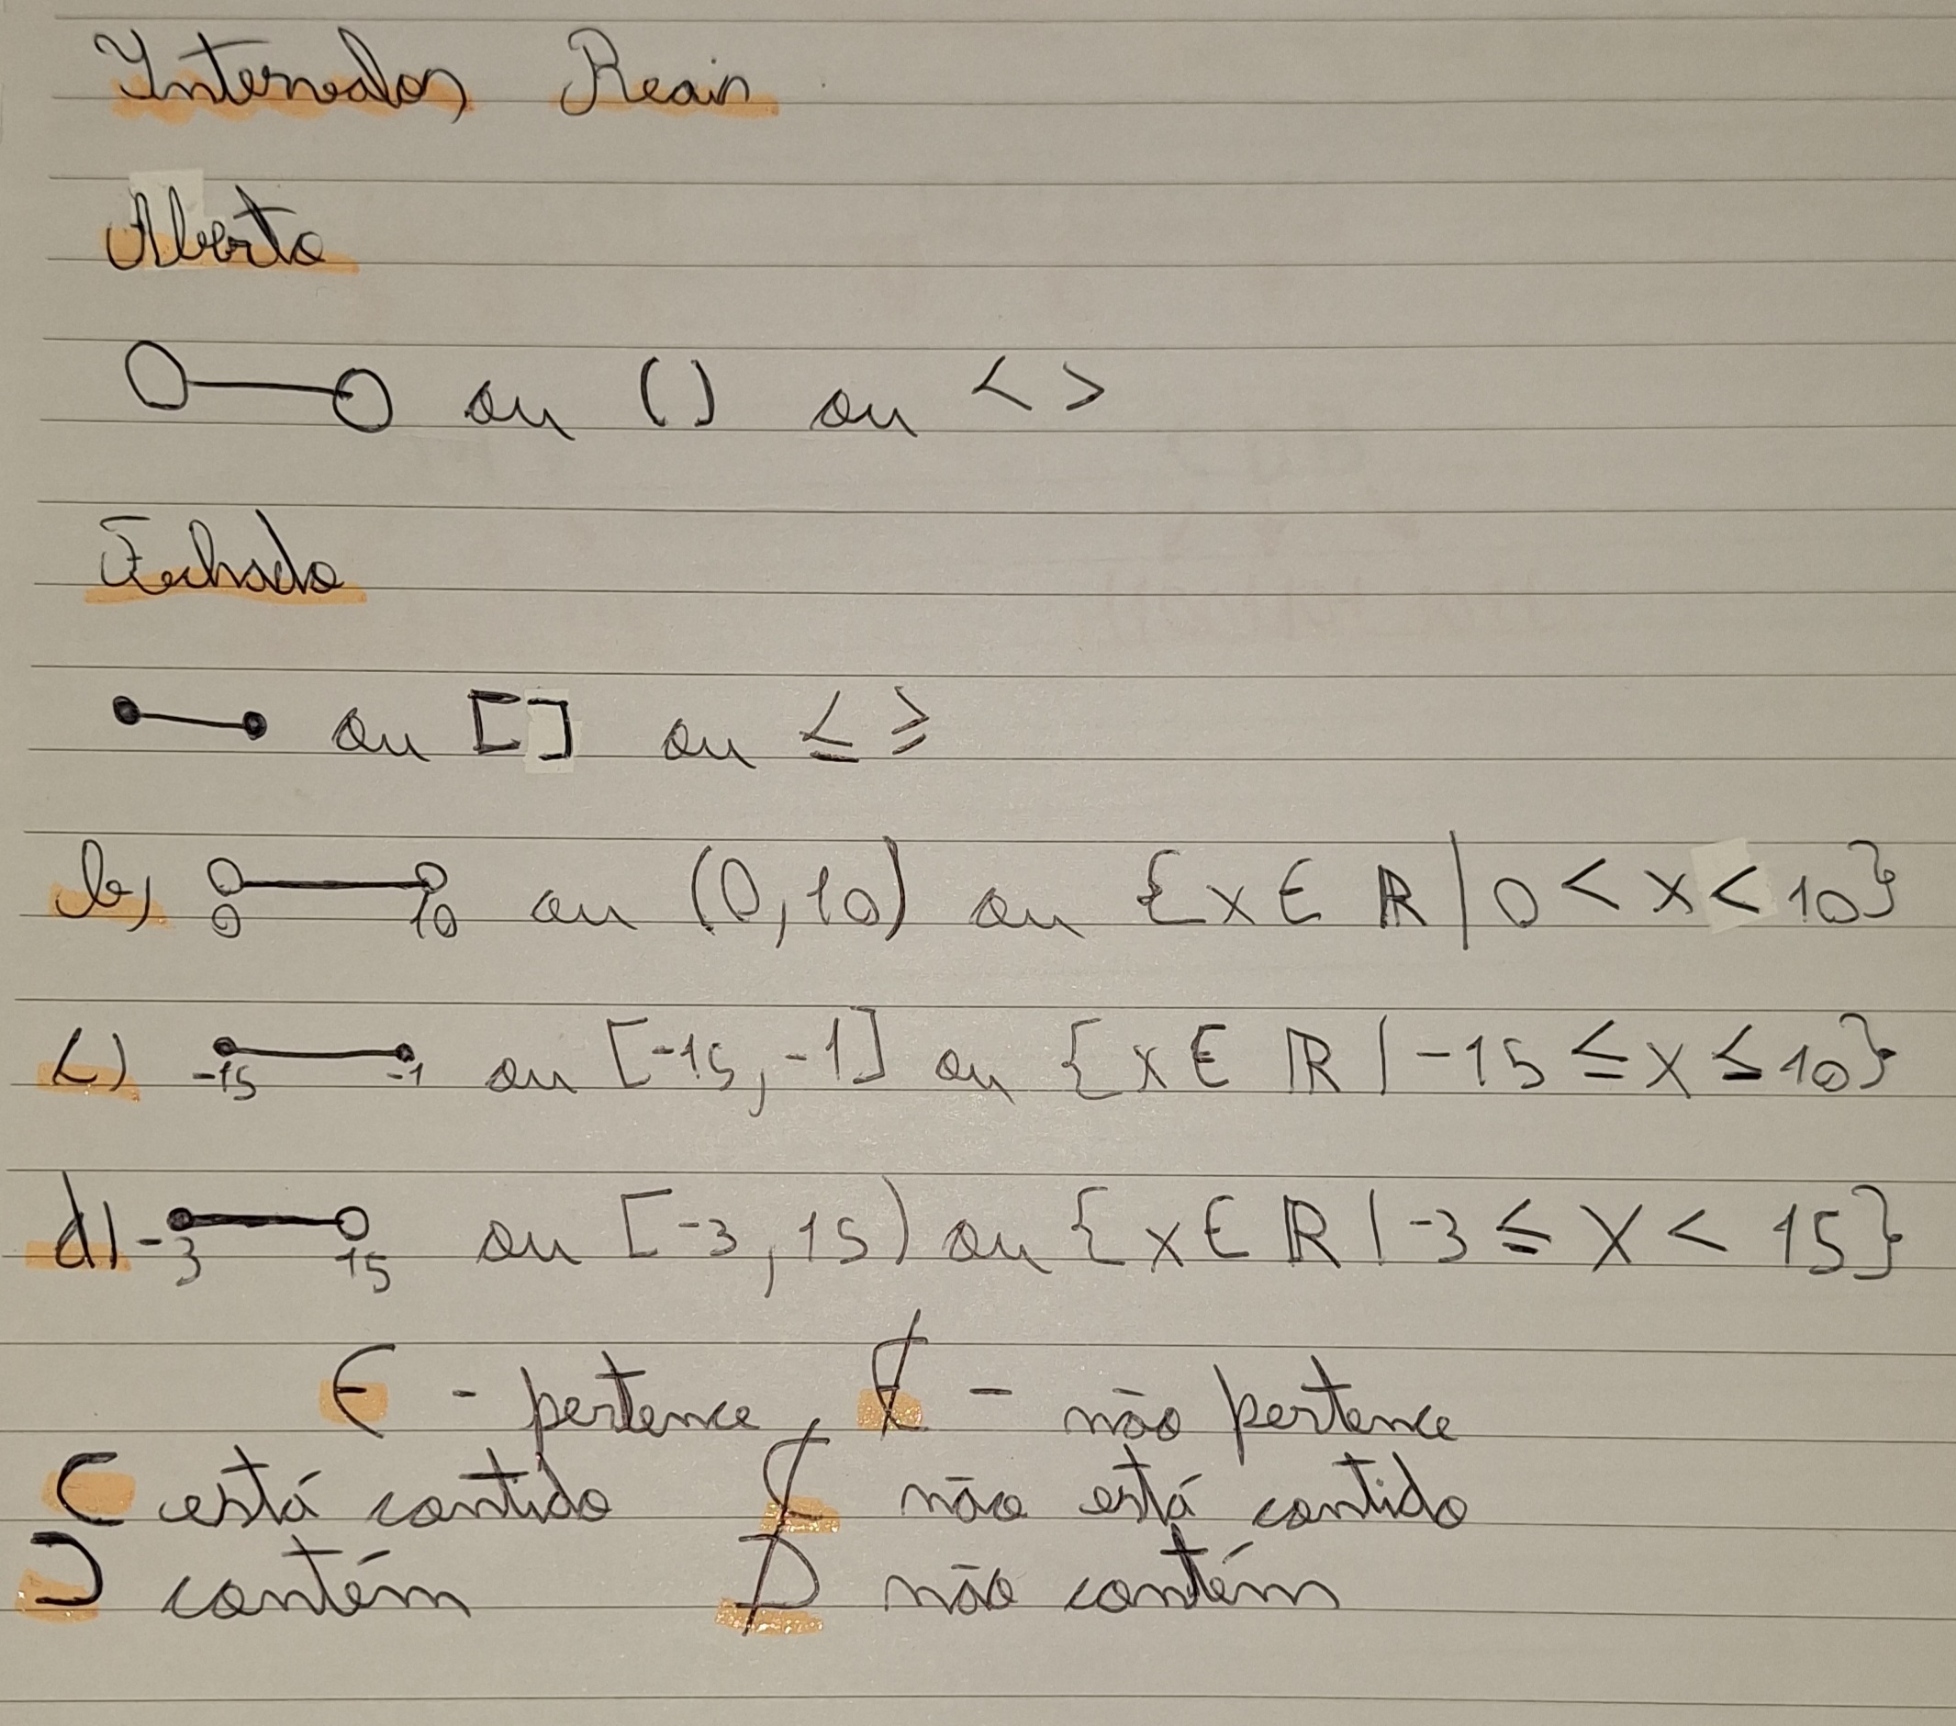 Intervalos Reais
Aberto
ou () ou < >
Fechado
ou [] ou ≤ ≥
b) 0 10 ou (0,10) ou {x ∈ ℝ | 0 < x < 10}
c) -15 -1 ou [-15,-1] ou {x ∈ ℝ | -15 ≤ x ≤ 10}
d) -3 15 ou [-3,15) ou {x ∈ ℝ | -3 ≤ x < 15}
∈ - pertence, ∉ - não pertence
⊂ está contido ⊄ não está contido
⊃ contém ⊅ não contém